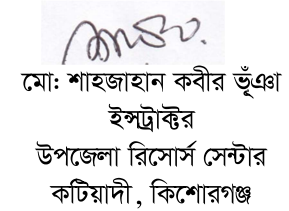 মো: শাহজাহান কবীর ভূঁঞা
ইন্সট্রাক্টর
উপজেলা রিসোর্স সেন্টার
কটিয়াদী, কিশোরগঞ্জ